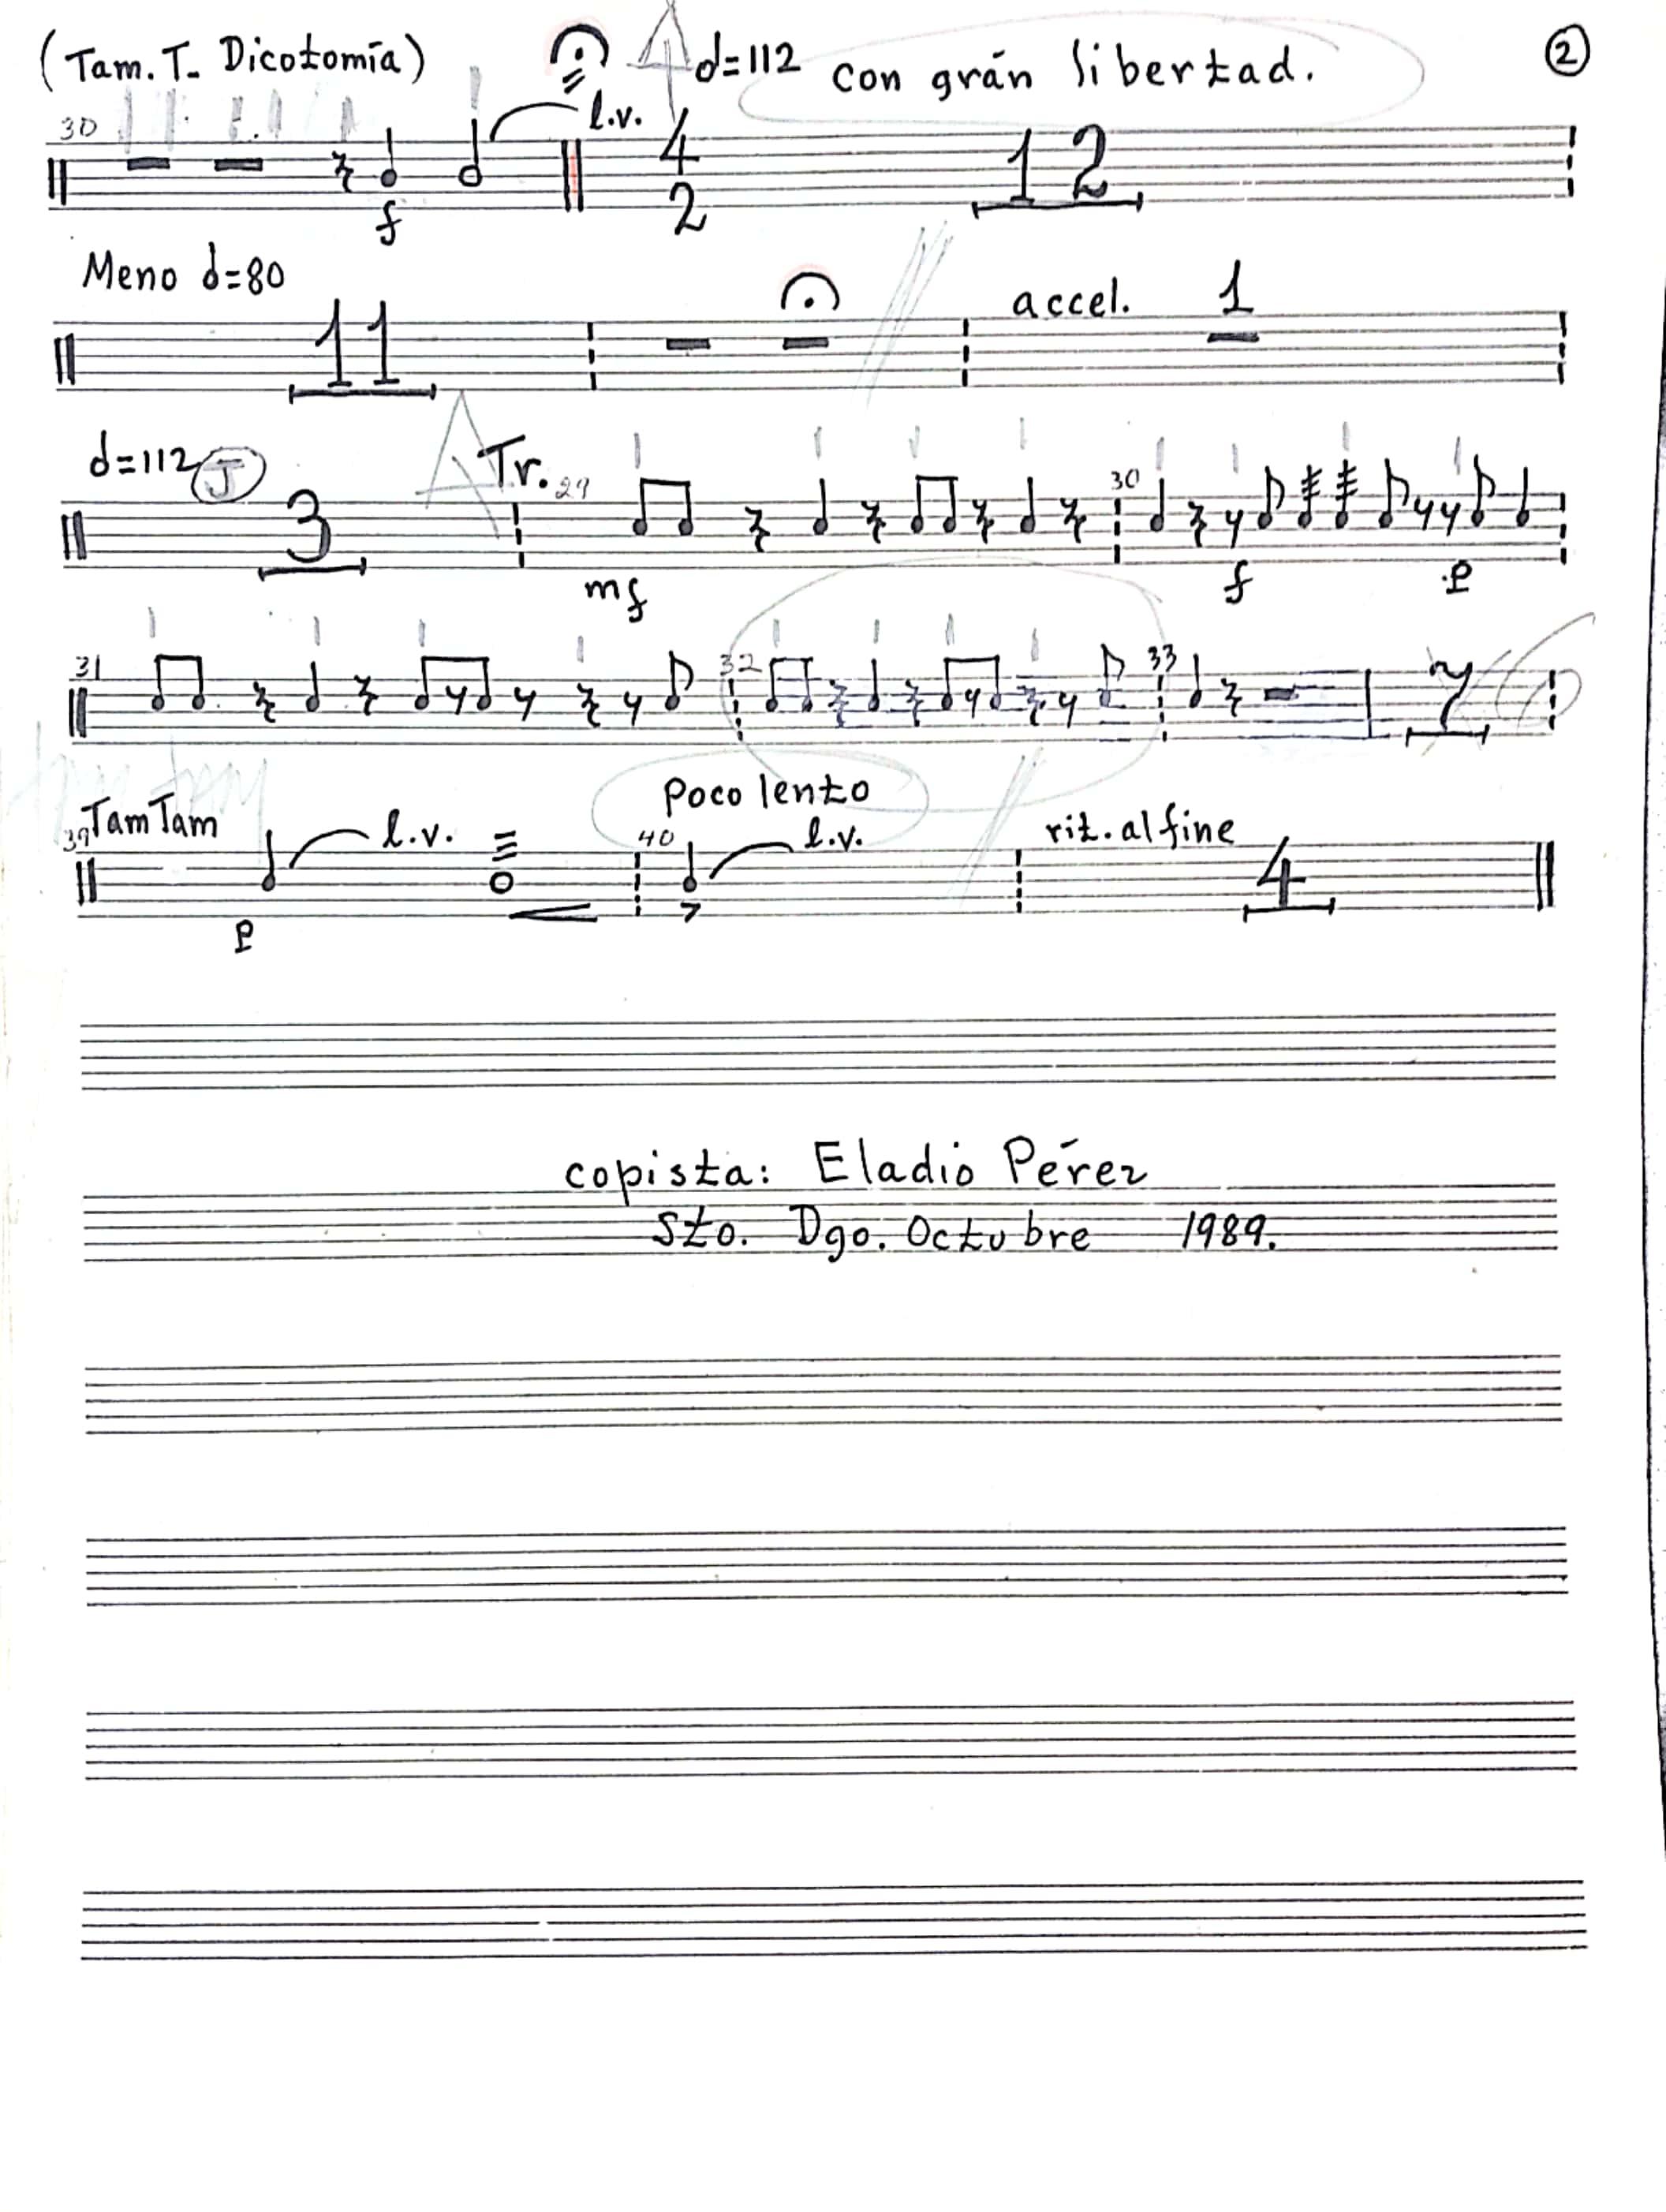 (Tam. T- Dicotomía) d=112 con grán libertad. 2
30 l.v.
f 4 2 12
Meno d=80
11 accel. 1
d=112 J 3 Tr. 29 30
mf f p
31 32 33 7
Poco lento
39 TamTam l.v. 40 l.v. rit. al fine
p 4
copista: Eladio Pérez
Sto. Dgo. Octubre 1989.